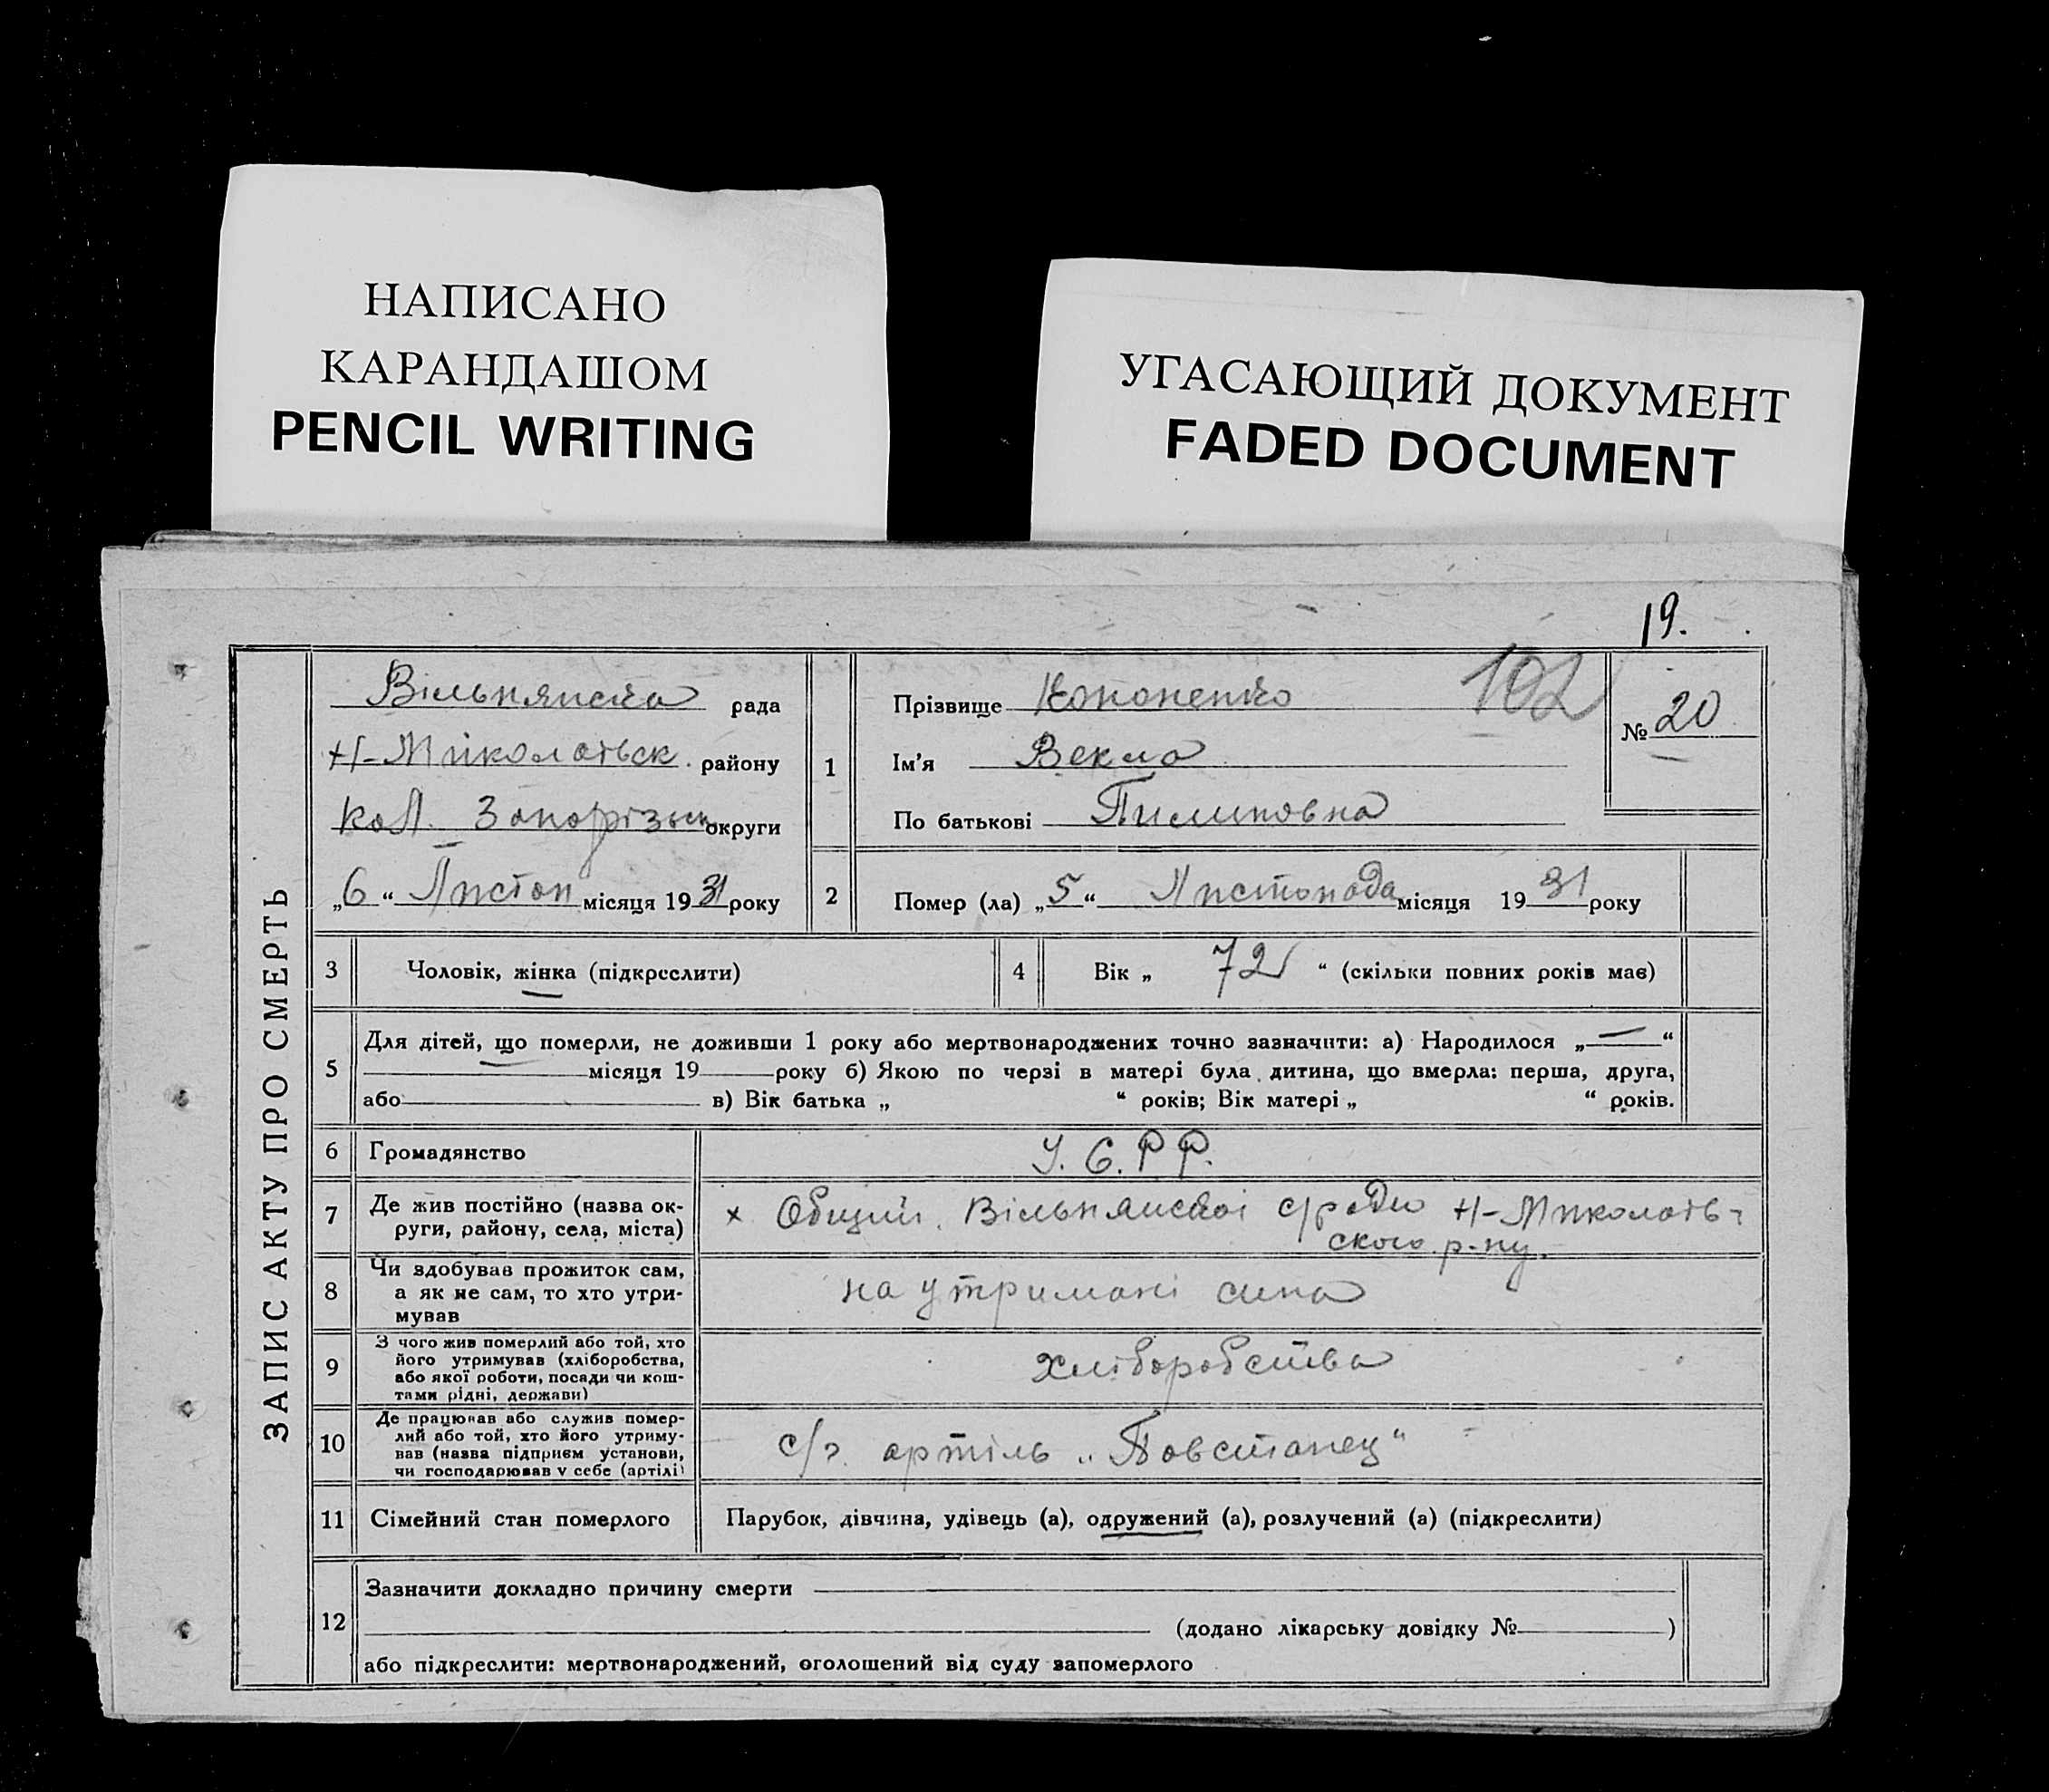 НАПИСАНО
КАРАНДАШОМ
PENCIL WRITING
УГАСАЮЩИЙ ДОКУМЕНТ
FADED DOCUMENT
19.
102
ЗАПИС АКТУ ПРО СМЕРТЬ
Вільнянска рада
Н-Миколаївськ. району
кол. Запорізьк округи
„6“ Листоп місяця 1931 року
1
Прізвище Кононенко
Ім'я Векла
По батькові Пилиповна
№ 20
2
Помер (ла) „5“ Листопада місяця 1931 року
3 Чоловік, жінка (підкреслити)
4 Вік „72“ (скільки повних років має)
5
Для дітей, що померли, не доживши 1 року або мертвонароджених точно зазначити: а) Народилося „—“
місяця 19 року б) Якою по черзі в матері була дитина, що вмерла: перша, друга,
або в) Вік батька „ “ років; Вік матері „ “ років.
6 Громадянство У.С.Р.Р.
7 Де жив постійно (назва ок-
руги, району, села, міста)
х Общий. Вільнянскої с/ради Н-Миколаїв-
ского р-ну.
8 Чи здобував прожиток сам,
а як не сам, то хто утри-
мував
на утримані сина
9 З чого жив померлий або той, хто
його утримував (хліборобства,
або якої роботи, посади чи кош-
тами рідні, держави)
хліборобства
10 Де працював або служив помер-
лий або той, хто його утриму-
вав (назва підприєм установи,
чи господарював у себе (артілі)
с/г. артіль „Повстанец“
11 Сімейний стан померлого
Парубок, дівчина, удівець (а), одружений (а), розлучений (а) (підкреслити)
12
Зазначити докладно причину смерти
(додано лікарську довідку № )
або підкреслити: мертвонароджений, оголошений від суду запомерлого